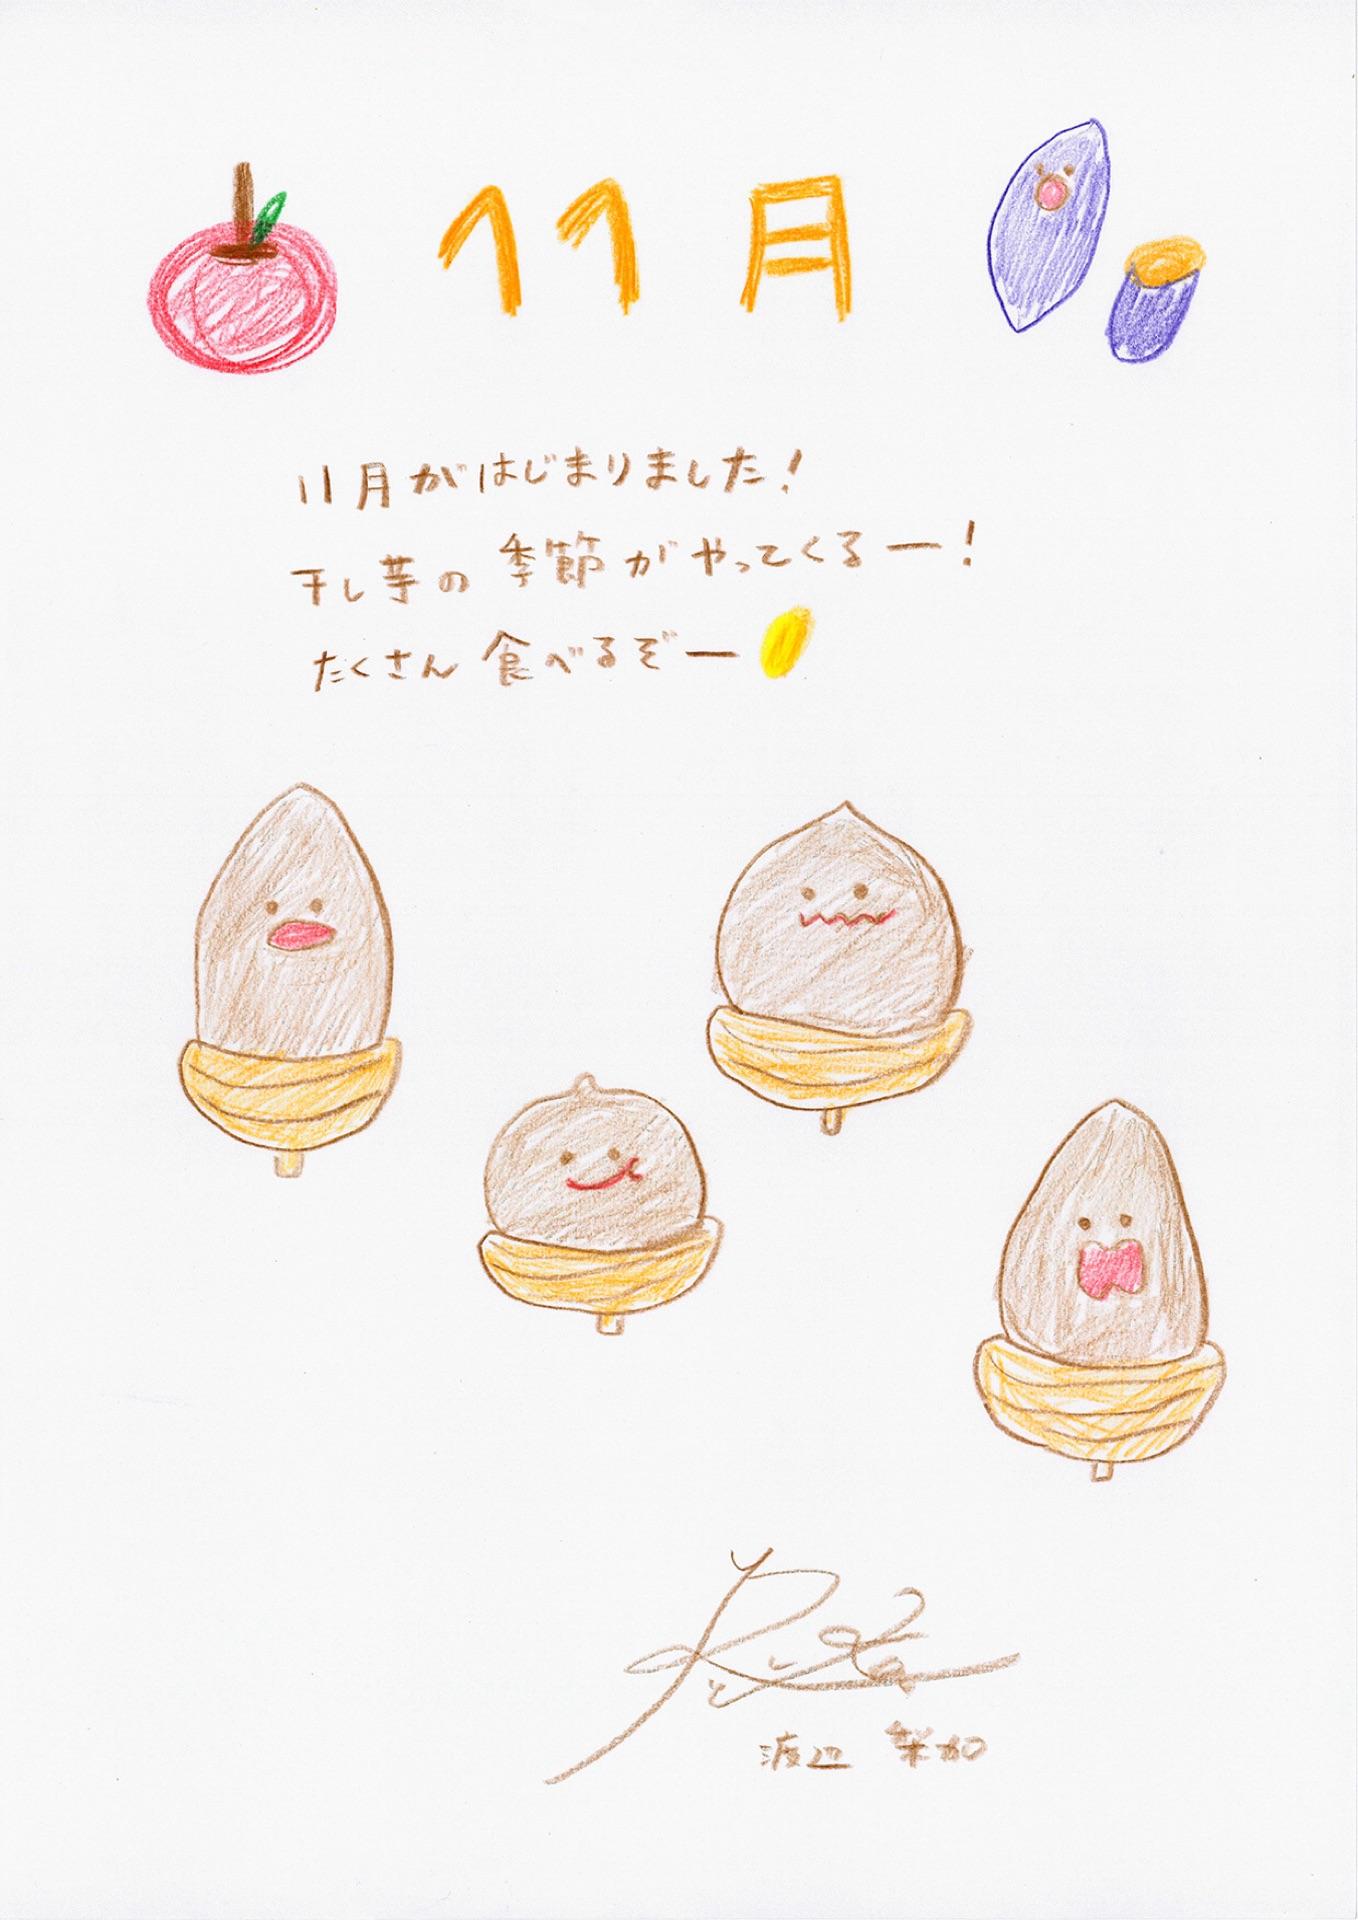 11月
11月がはじまりました!
干し芋の季節がやってくるー!
たくさん食べるぞー
渡辺 梨加